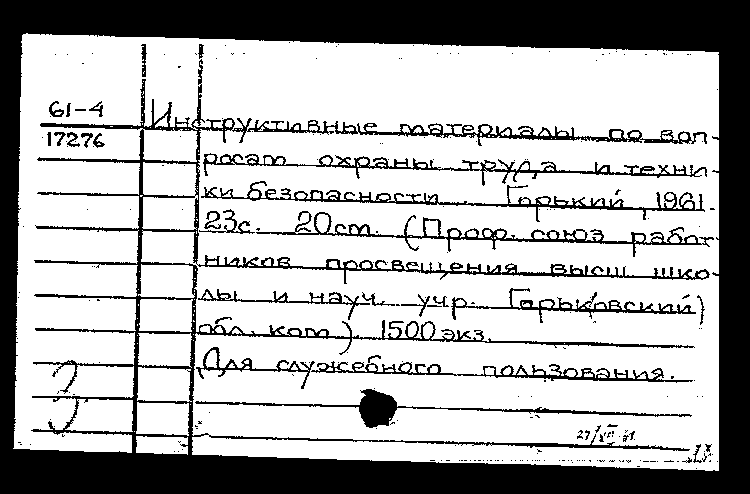 61-4
17276
Инструктивные материалы по воп-
росам охраны труда и техни-
ки безопасности. Горький, 1961.
23с. 20см. (Проф. союз работ-
ников просвещения высш шко-
лы и науч. учр. Горьковский)
обл. ком) 1500 экз.
Для служебного пользования.
3
27/XII-61